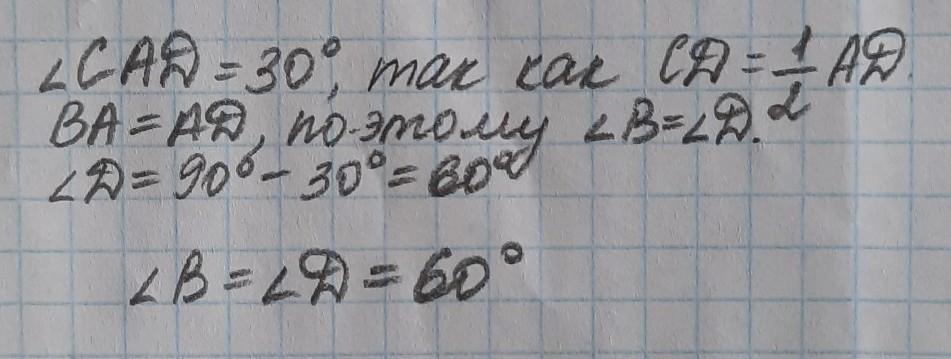 ∠CAD = 30°, так как CD = 1/2 AD.
BA = AD, поэтому ∠B = ∠D.
∠D = 90° - 30° = 60°
∠B = ∠D = 60°